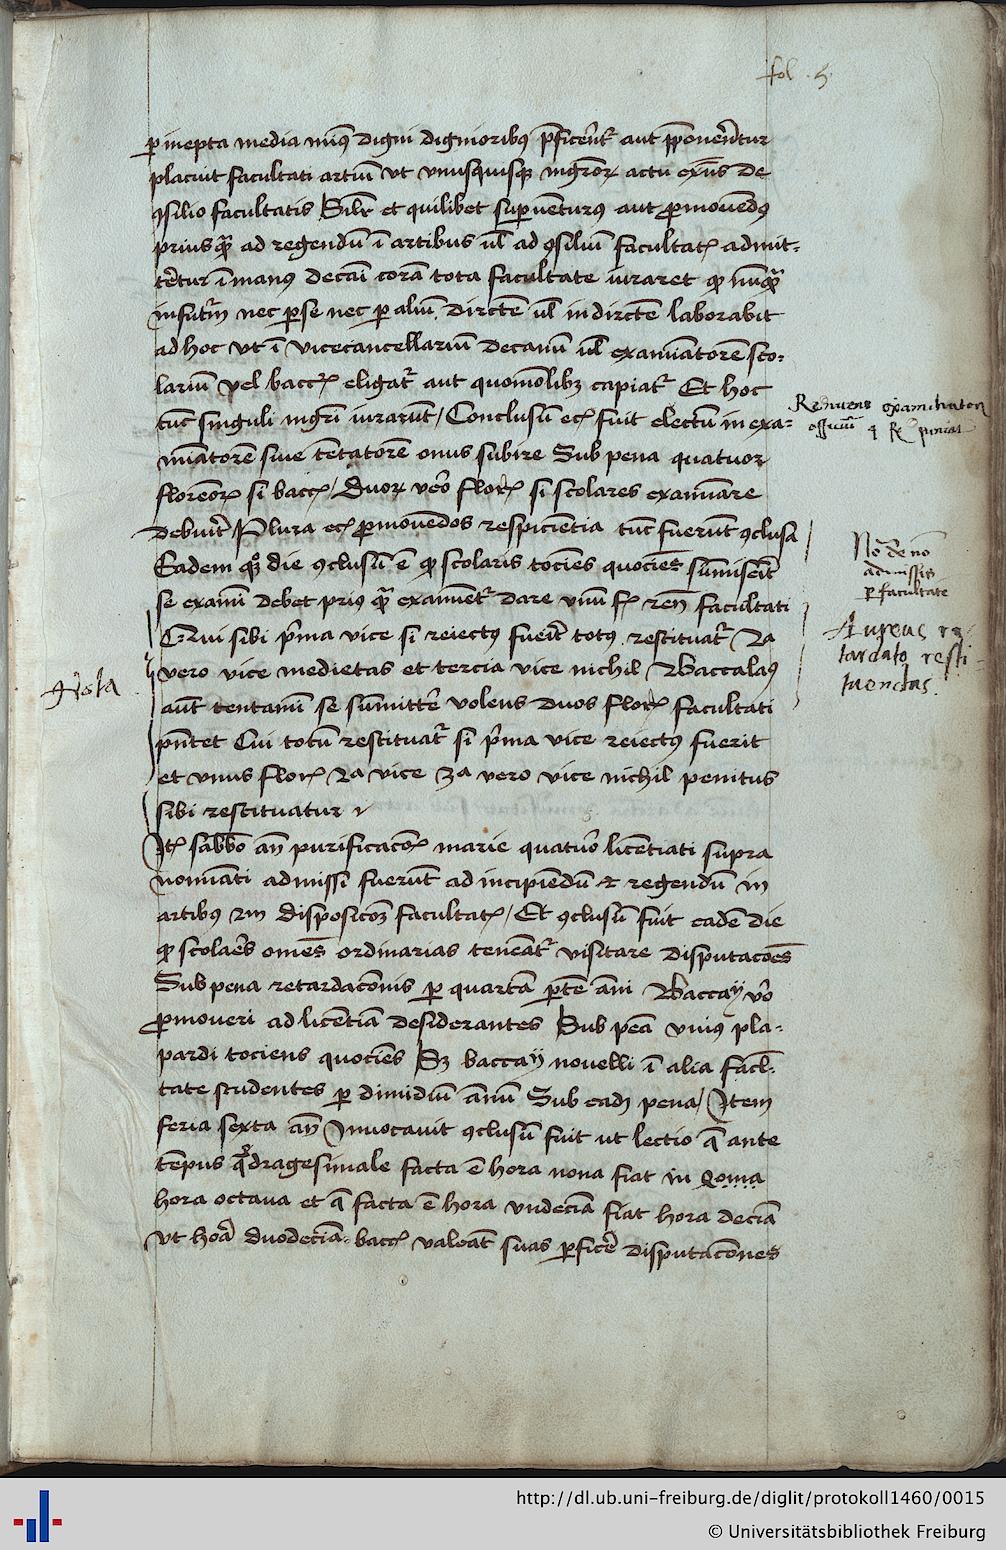 fol . 5.
p inepta media min9 digni dignioribus p̄ficerent2 aut pponerēdtur
placuit facultati artiū vt vnusquisq mgr̄or actu exn̄s de
9silio facultatis Silr et quilibet superuenturus aut pmouēdus
priusq̄ ad regendū ī artibus ul ad 9siliū facultatꝭ admit-
tētur ī manus decani corā tota facultate iuraret qp nūq̄
infutur̄m nec p se nec p aliū dirctē ul indirctē laborabit
ad hoc vt ī vicecancellariū decanū ul examīatorē sco-
lariū vel baccꝭ eligatr aut quomōlibꝫ capiatr Et hoc
tūc singuli mgr̄i iurarūt / Conclusū ecꝭ fuit electū in exa-
mīatorē siue tētatorē onus subire Sub pena quatuor
florēorꝭ si baccꝭ / duorꝭ vero florꝭ si scolares examīare
debuīt Plura ecꝭ pmouēdos respicientia tūc fuerūt 9clusa
Eadem qꝫ die 9clusū ē qp scolaris tociēs quociēs sūmiserit
se examī debet prius q̄ examīetr dare vnū fꝭ reñ facultati
Qui sibi prima vice si reiectus fuerit totus restituatr 2a
vero vice medietas et tercia vice nichil Baccalaꝰ
aūt tentamī se sūmittere volens duos florꝭ facultati
pn̄tet Cui totū restituatr si prima vice reiectus fuerit
et vnus florꝭ 2a vice 3a vero vice nichil penitus
sibi restituatur
Itꝭ sabbō an̄ purificacōꝭ marie quatuor licentiati supra
nomīati admissi fuerūt ad incipiēdū et regendū in
artibus 2m disposicōꝫ facultatꝭ / Et 9clusū fuit eadē die
qp scolares om̄es ordinarias teneātr visitare disputacōes
Sub pena retardacōnis p quartā ptē anni Baccarij vero
pmoueri ad licētiā desiderantes Sub pena vnius pla-
pardi tociens quociēs Sꝫ baccarij nouelli ī alia facul-
tate studentes p dimidiū annū Sub eadꝫ pena / Item
feria sexta an̄ Inuocauit 9clusū fuit ut lectio q̄ ante
tēpus q̄dragesimale facta ē hora nona fiat in qoma
hora octaua et q̄ facta ē hora vndecīa fiat hora decīa
vt hora duodecīa baccꝭ valeāt suas pficere disputacōnes
Renuens examinatoris
officiū
Nō de nō
admissis
p facultate
Aureus re-
tardato resti-
tuendus.
Nota
http://dl.ub.uni-freiburg.de/diglit/protokoll1460/0015
© Universitätsbibliothek Freiburg